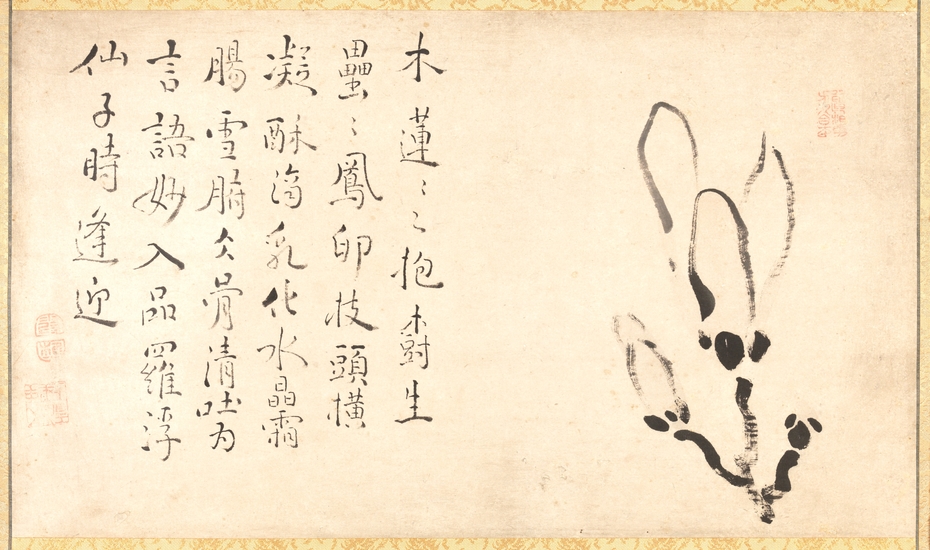 木蓮〻〻抱樹生
壘〻鳳卵枝頭橫
凝酥滴乳化水晶霜
腸雪腑仌骨清吐为
言語妙入品羅浮
仙子時逢迎